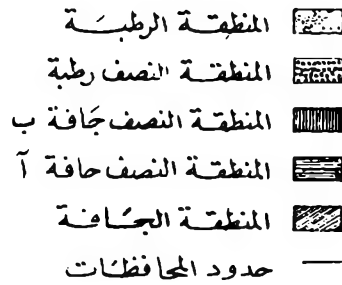 المنطقة الرطبة
المنطقة النصف رطبة
المنطقة النصف جَافة ب
المنطقة النصف حافة آ
المنطقة الجافة
حدود المحافظات